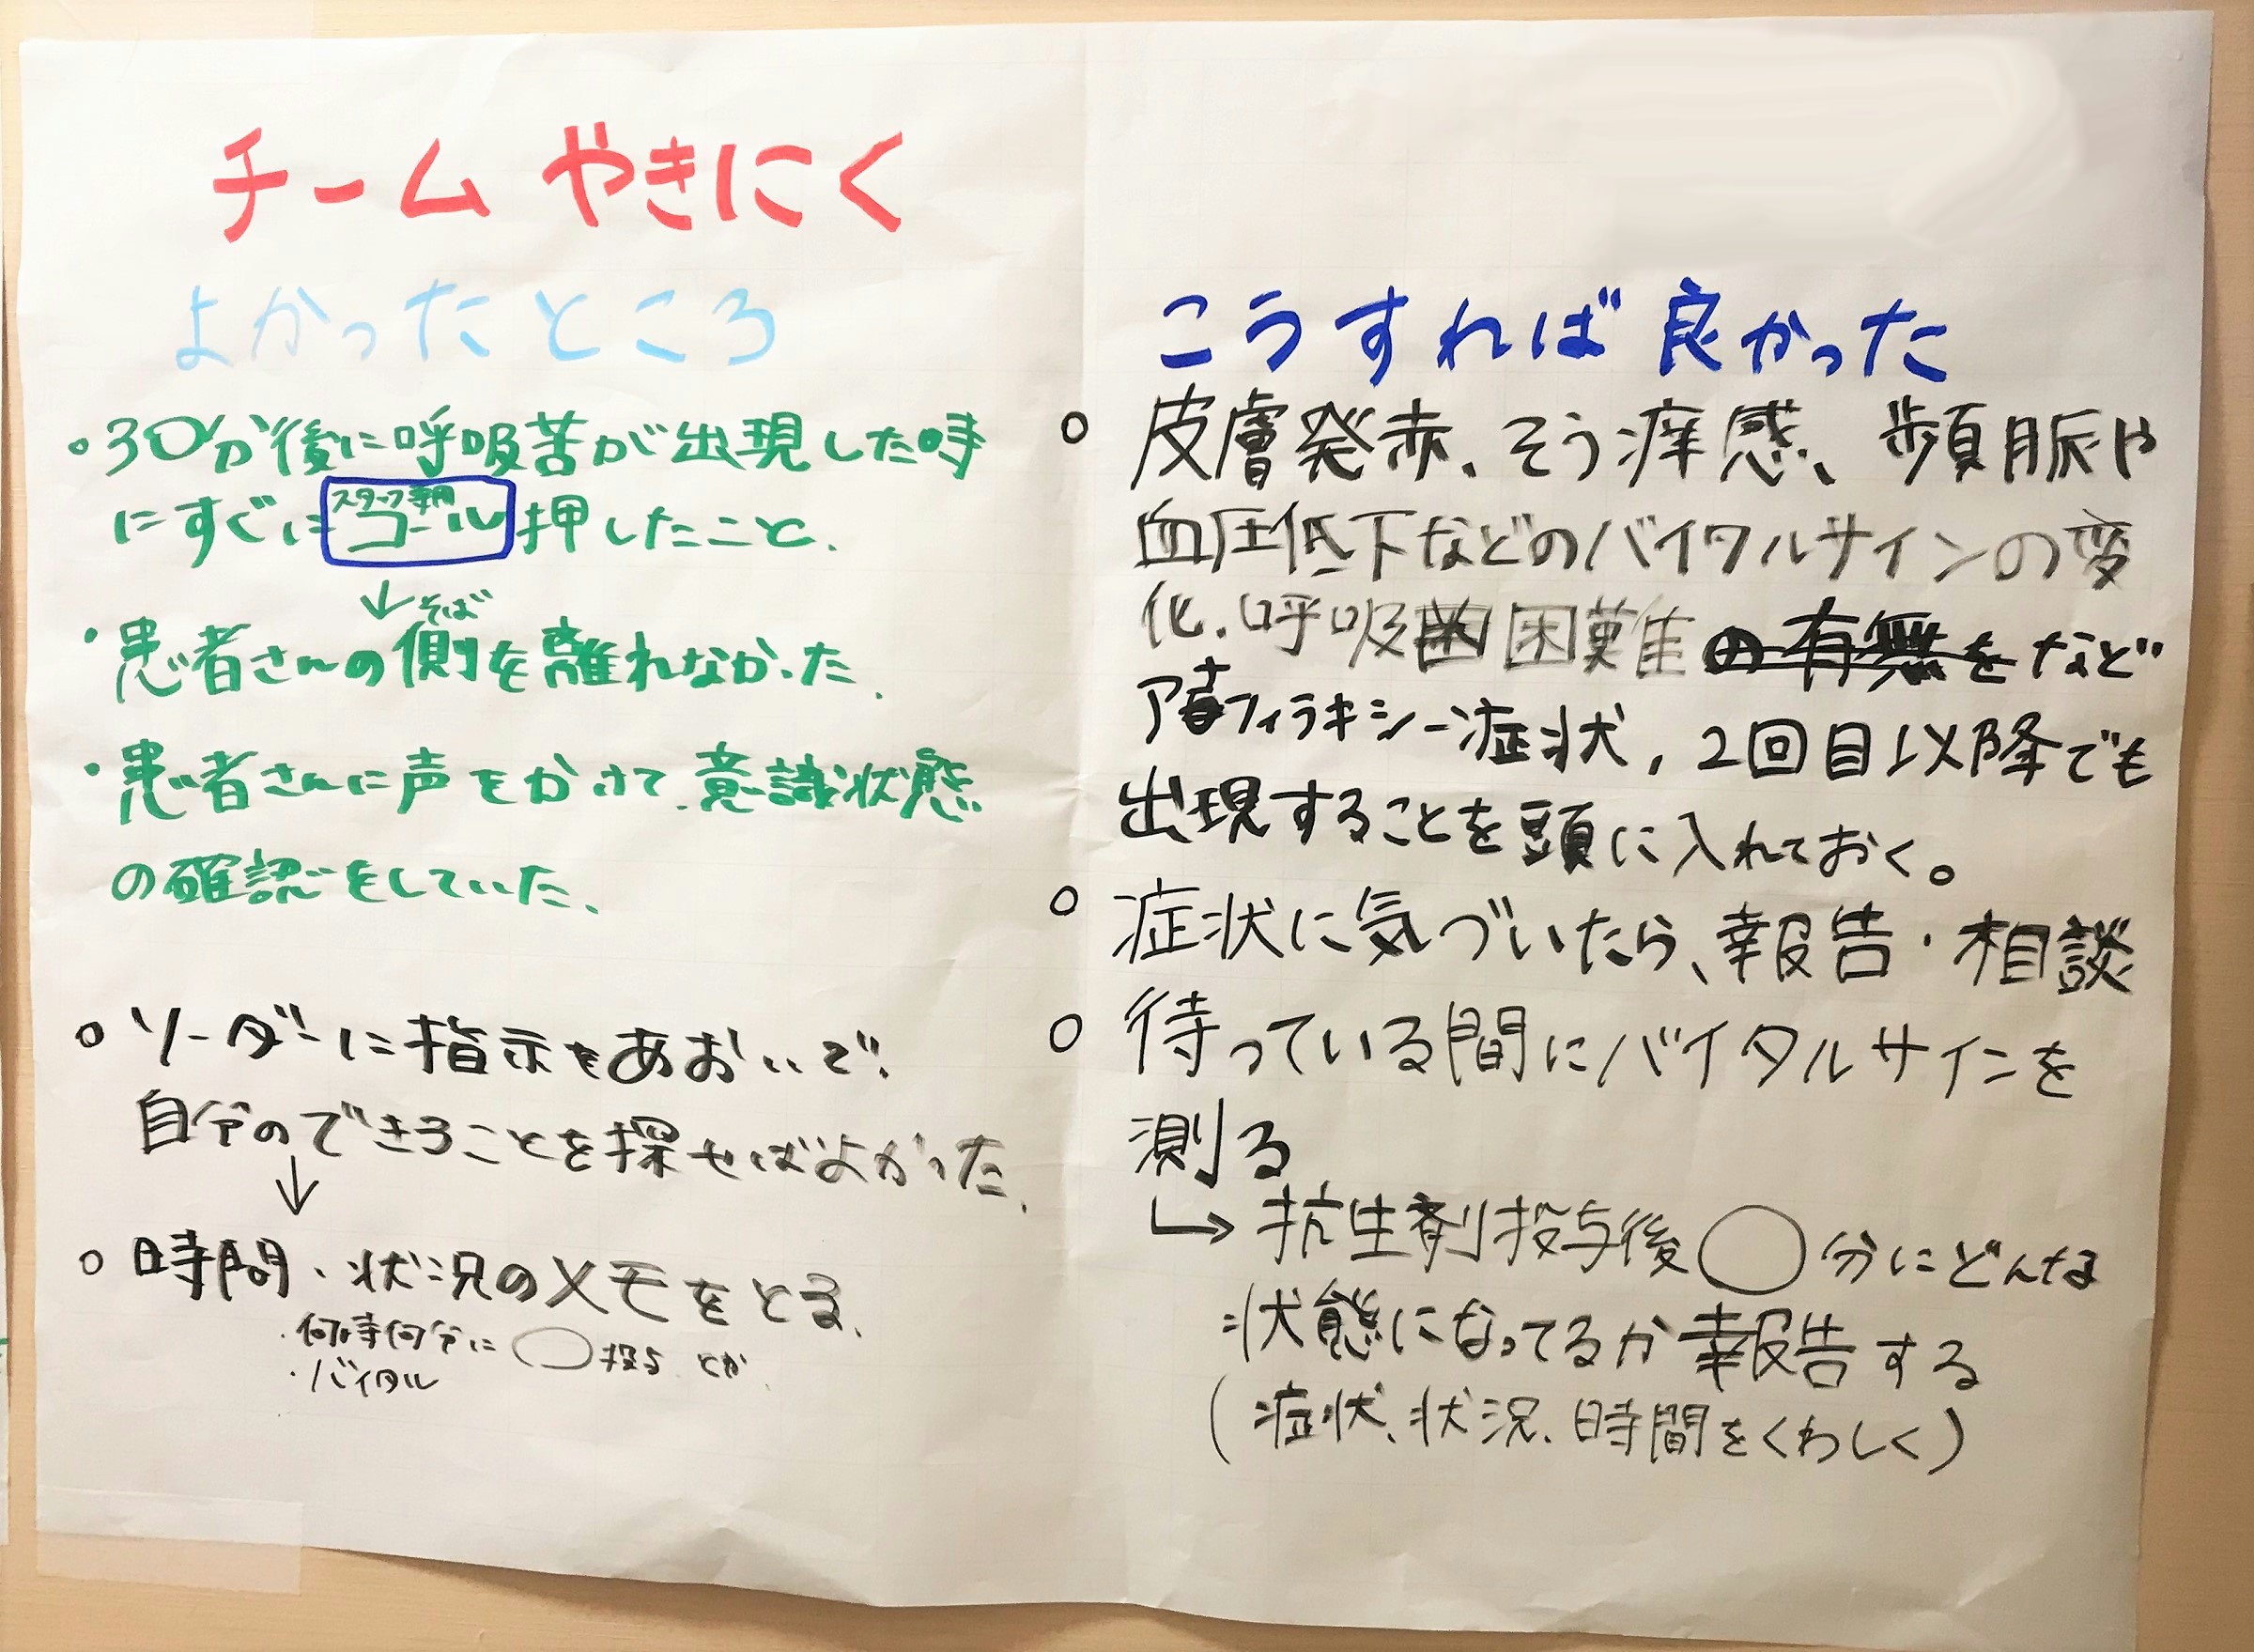 チーム やきにく
よかったところ
・30分後に呼吸苦が出現した時
にすぐにコール押したこと.
スタッフ
↓
そば
・患者さんの側を離れなかった.
・患者さんに声をかけて.意識状態
の確認をしていた、
○ リーダーに指示をあおいで.
自分のできることを探せばよかった.
↓
○ 時間・状況のメモをとる.
・何時何分に ◯ 投与 とか
・バイタル
こうすれば 良かった
○ 皮膚発赤、そう痒感、頻脈や
血圧低下などのバイタルサインの変
化、呼吸困難の有無をなど
アナフィラキシー症状，2回目以降でも
出現することを頭に入れておく。
○ 症状に気づいたら、報告・相談
○ 待っている間にバイタルサインを
測る
↳ 抗生剤投与後 ◯ 分にどんな
状態になってるか報告する
(症状、状況、時間をくわしく)